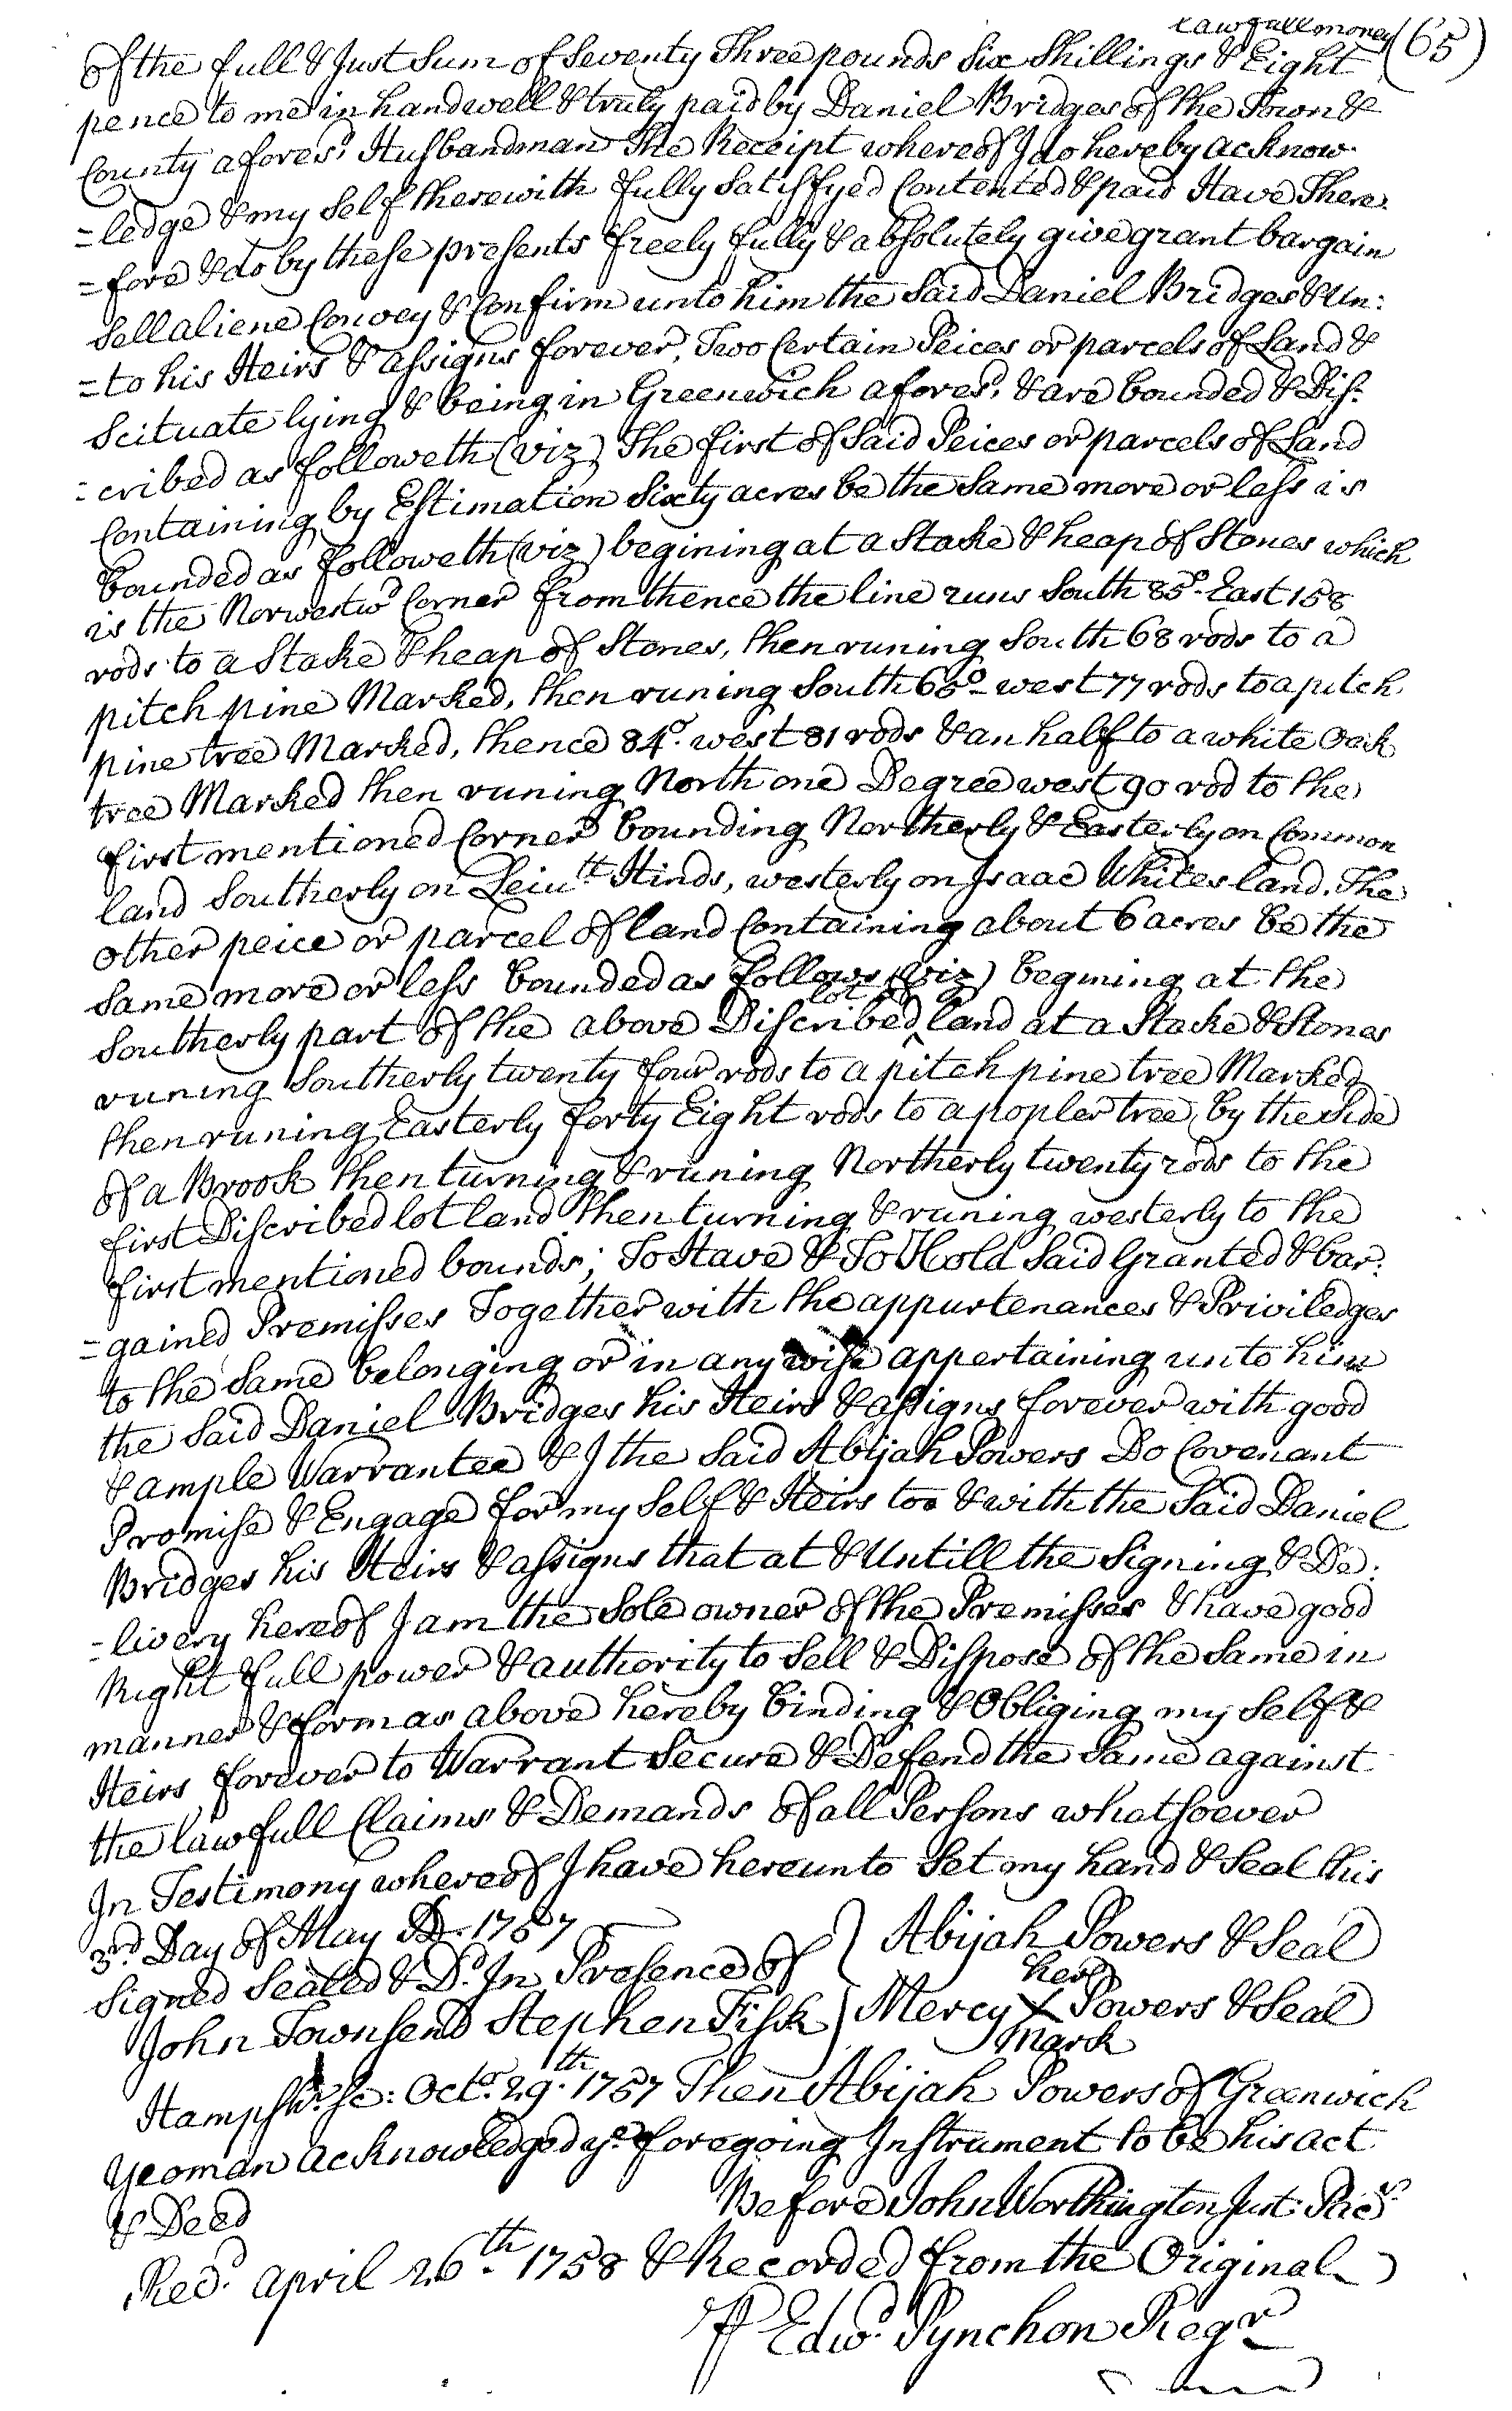 Lawfull money (65)
of the full & Just Sum of Seventy Three pounds Six Shillings & Eight
pence to me in hand well & truly paid by Daniel Bridges of the Town &
County afores.d Husbandman The Receipt whereof I do hereby acknow-
=ledge & my Self therewith fully Satisfyed Contented & paid Have There-
=fore & do by these presents freely fully & absolutely give grant bargain
Sell aliene Convey & Confirm unto him the Said Daniel Bridges & Un:
=to his Heirs & assigns forever, Two Certain Peices or parcels of Land &
Scituate lying & being in Greenwich afores.d & are bounded & Dis:
=cribed as followeth (viz) The first of Said Peices or parcels of Land
Containing by Estimation Sixty acres be the Same more or less is
bounded as followeth (viz) begining at a Stake & heap of Stones which
is the Norwestw.d Corner from thence the line runs South 85° East 158
rods to a Stake & heap of Stones, then runing South 68 rods to a
pitch pine Marked, then runing South 66° west 77 rods to a pitch
pine tree Marked, thence 84° west 81 rods & an half to a white Oack
tree Marked then runing North one Degree west 90 rod to the
first mentioned Corner bounding Northerly & Easterly on Common
land Southerly on Leiu.tt Hinds, westerly on Isaac Whites land. The
other peice or parcel of land Containing about 6 acres be the
Same more or less bounded as follows (viz) begining at the
Southerly part of the above Discribed lot land at a Stake & Stones
runing Southerly twenty four rods to a pitch pine tree Marked
then runing Easterly forty Eight rods to a popler tree by the Side
of a Brook then turning & runing Northerly twenty rods to the
first Discribed lot land then turning & runing westerly to the
first mentioned bounds; To Have & To Hold Said Granted & bar:
=gained Premisses Together with the appurtenances & Priviledges
to the Same belonging or in any wise appertaining unto him
the Said Daniel Bridges his Heirs & assigns forever with good
& ample Warrantee & I the Said Abijah Powers Do Covenant
Promise & Engage for my Self & Heirs too & with the Said Daniel
Bridges his Heirs & assigns that at & Untill the Signing & De:
=livery hereof I am the Sole owner of the Premisses & have good
Right full power & authority to Sell & Dispose of the Same in
manner & form as above hereby binding & Obliging my Self &
Heirs forever to Warrant Secure & Defend the Same against
the lawfull Claims & Demands of all Persons whatsoever
In Testimony whereof I have hereunto Set my hand & Seal this
3.rd Day of May AD. 1757
Signed Sealed & D.d In Presence of } Abijah Powers & Seal
John Townsend Stephen Fisk } Mercy her X Mark Powers & Seal
Hampsh.r Sc: Oct.o 29.th 1757 Then Abijah Powers of Greenwich
Yeoman acknowledged y.e foregoing Instrument to be his act
& Deed Before John Worthington Just: Pac.s
Rec.d april 26.th 1758 & Recorded from the Original
P Edw.d Pynchon Reg.r